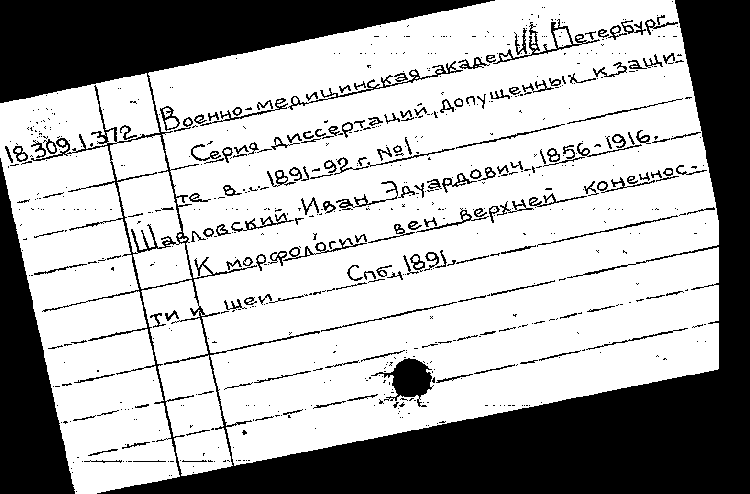 18.309.1.372. Военно-медицинская академия, Петербург.
Серия диссертаций, допущенных к защи-
те в... 1891-92 г. №1.
Шавловский, Иван Эдуардович, 1856-1916.
К морфологии вен верхней конечнос-
ти и шеи. Спб., 1891.